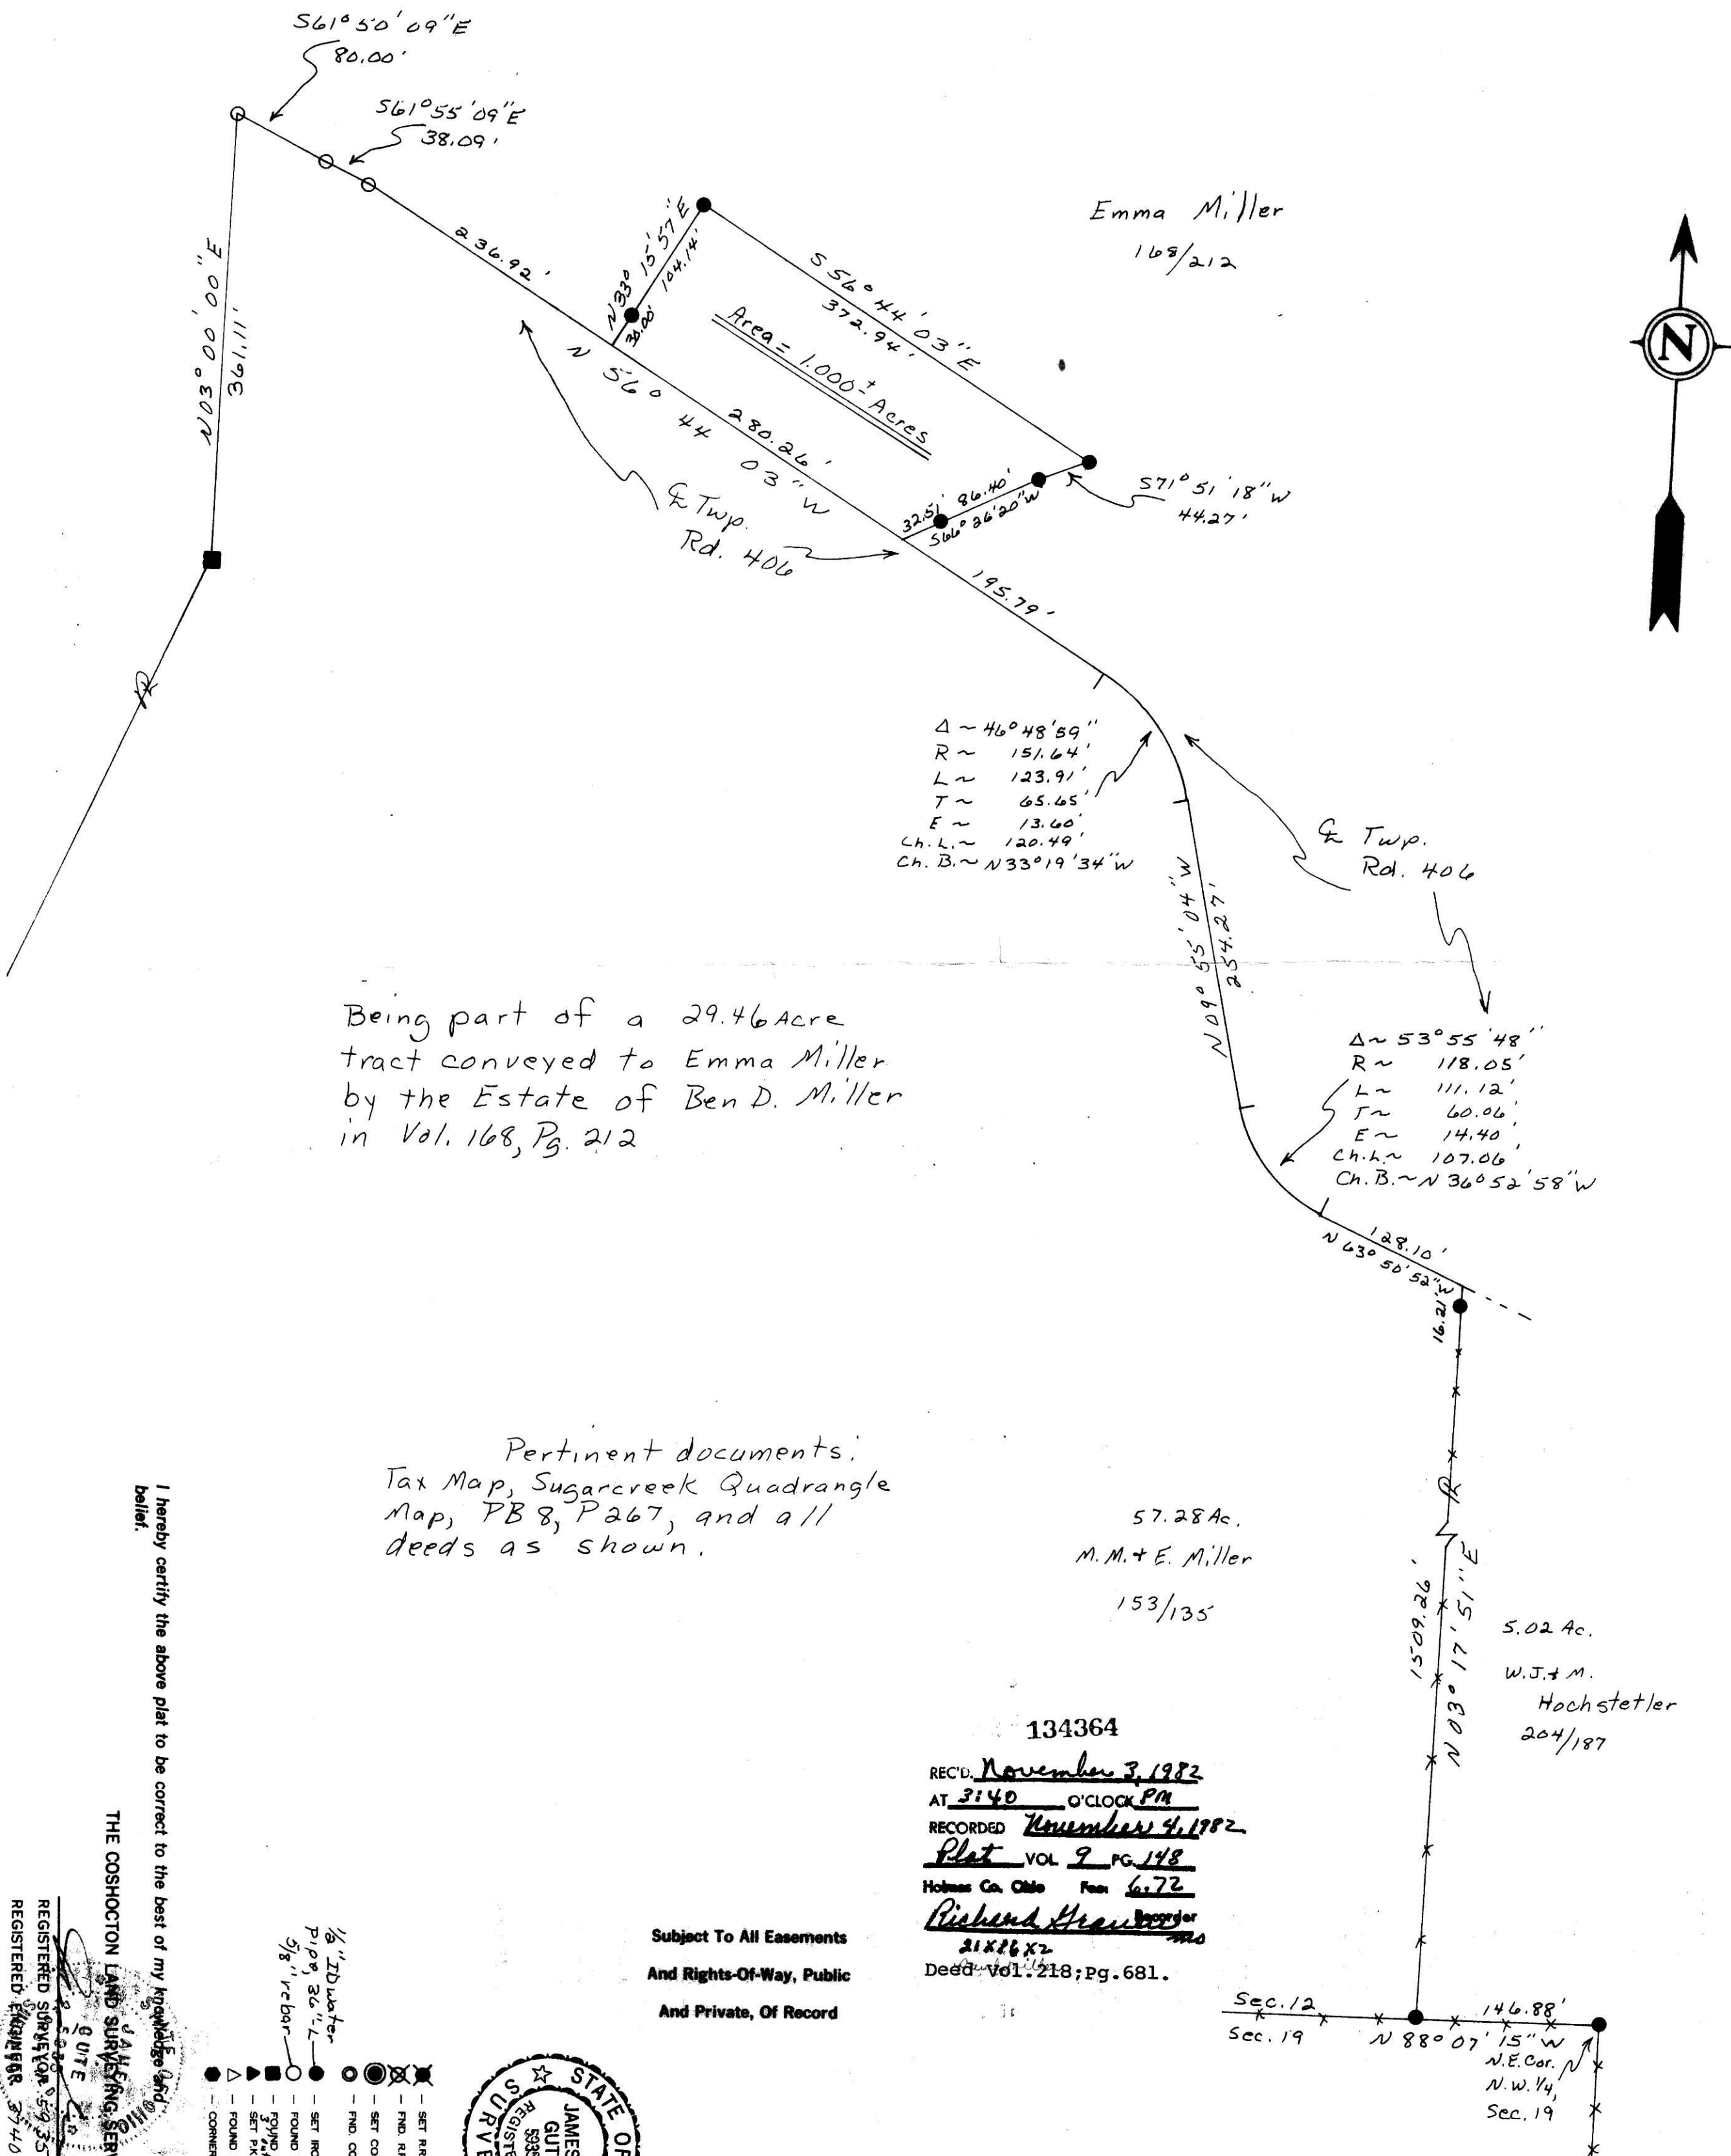 S61°50'09"E
80.00'
S61°55'09"E
38.09'
N03°00'00"E
361.11'
236.92'
N33° 15' 57"E
104.14'
30.00'
S56°44'03"E
372.94'
Area = 1.000± Acres
Emma Miller
168/212
N
N 56° 44 03"W
280.26'
℄ Twp.
Rd. 406
32.51' 86.40'
S66°26'20"W
S71°51'18"W
44.27'
195.79'
Δ ~ 46°48'59"
R ~ 151.64'
L ~ 123.91'
T ~ 65.65'
E ~ 13.60'
Ch. L. ~ 120.49'
Ch. B. ~ N33°19'34"W
℄ Twp.
Rd. 406
N09°55'04"W
254.27'
Being part of a 29.46 Acre
tract conveyed to Emma Miller
by the Estate of Ben D. Miller
in Vol. 168, Pg. 212
Δ ~ 53°55'48"
R ~ 118.05'
L ~ 111.12'
T ~ 60.06'
E ~ 14.40'
Ch.L ~ 107.06'
Ch. B. ~ N36°52'58"W
128.10'
N63°50'52"W
16.21'
Pertinent documents:
Tax Map, Sugarcreek Quadrangle
Map, PB 8, P267, and all
deeds as shown.
57.28 Ac.
M. M. + E. Miller
153/135
1509.26'
N 03° 17' 51" E
5.02 Ac.
W. J. + M.
Hochstetler
204/187
134364
REC'D. November 3, 1982
AT 3:40 O'CLOCK PM
RECORDED November 4, 1982
Plat VOL 9 PG. 148
Holmes Co. Ohio Fee: 6.72
Richard Recorder
21X26X2
Deed Vol.218;Pg.681.
Subject To All Easements
And Rights-Of-Way, Public
And Private, Of Record
Sec. 12
Sec. 19
146.88'
N 88° 07' 15" W
N.E. Cor.
N.W. 1/4,
Sec. 19
I hereby certify the above plat to be correct to the best of my knowledge and
belief.
THE COSHOCTON LAND SURVEYING SERV
REGISTERED SURVEYOR 5935
REGISTERED ENGINEER 3740
1/2" ID water
Pipe, 36"-L
5/8" rebar
- SET R.R.
- FND. R.R.
- SET CO
- FND. CO
- SET IRO
- FOUND
- FOUND
- SET P.K.
- FOUND
- CORNER
STATE OF
JAMES
GUT
5935
REGISTE
SURVE